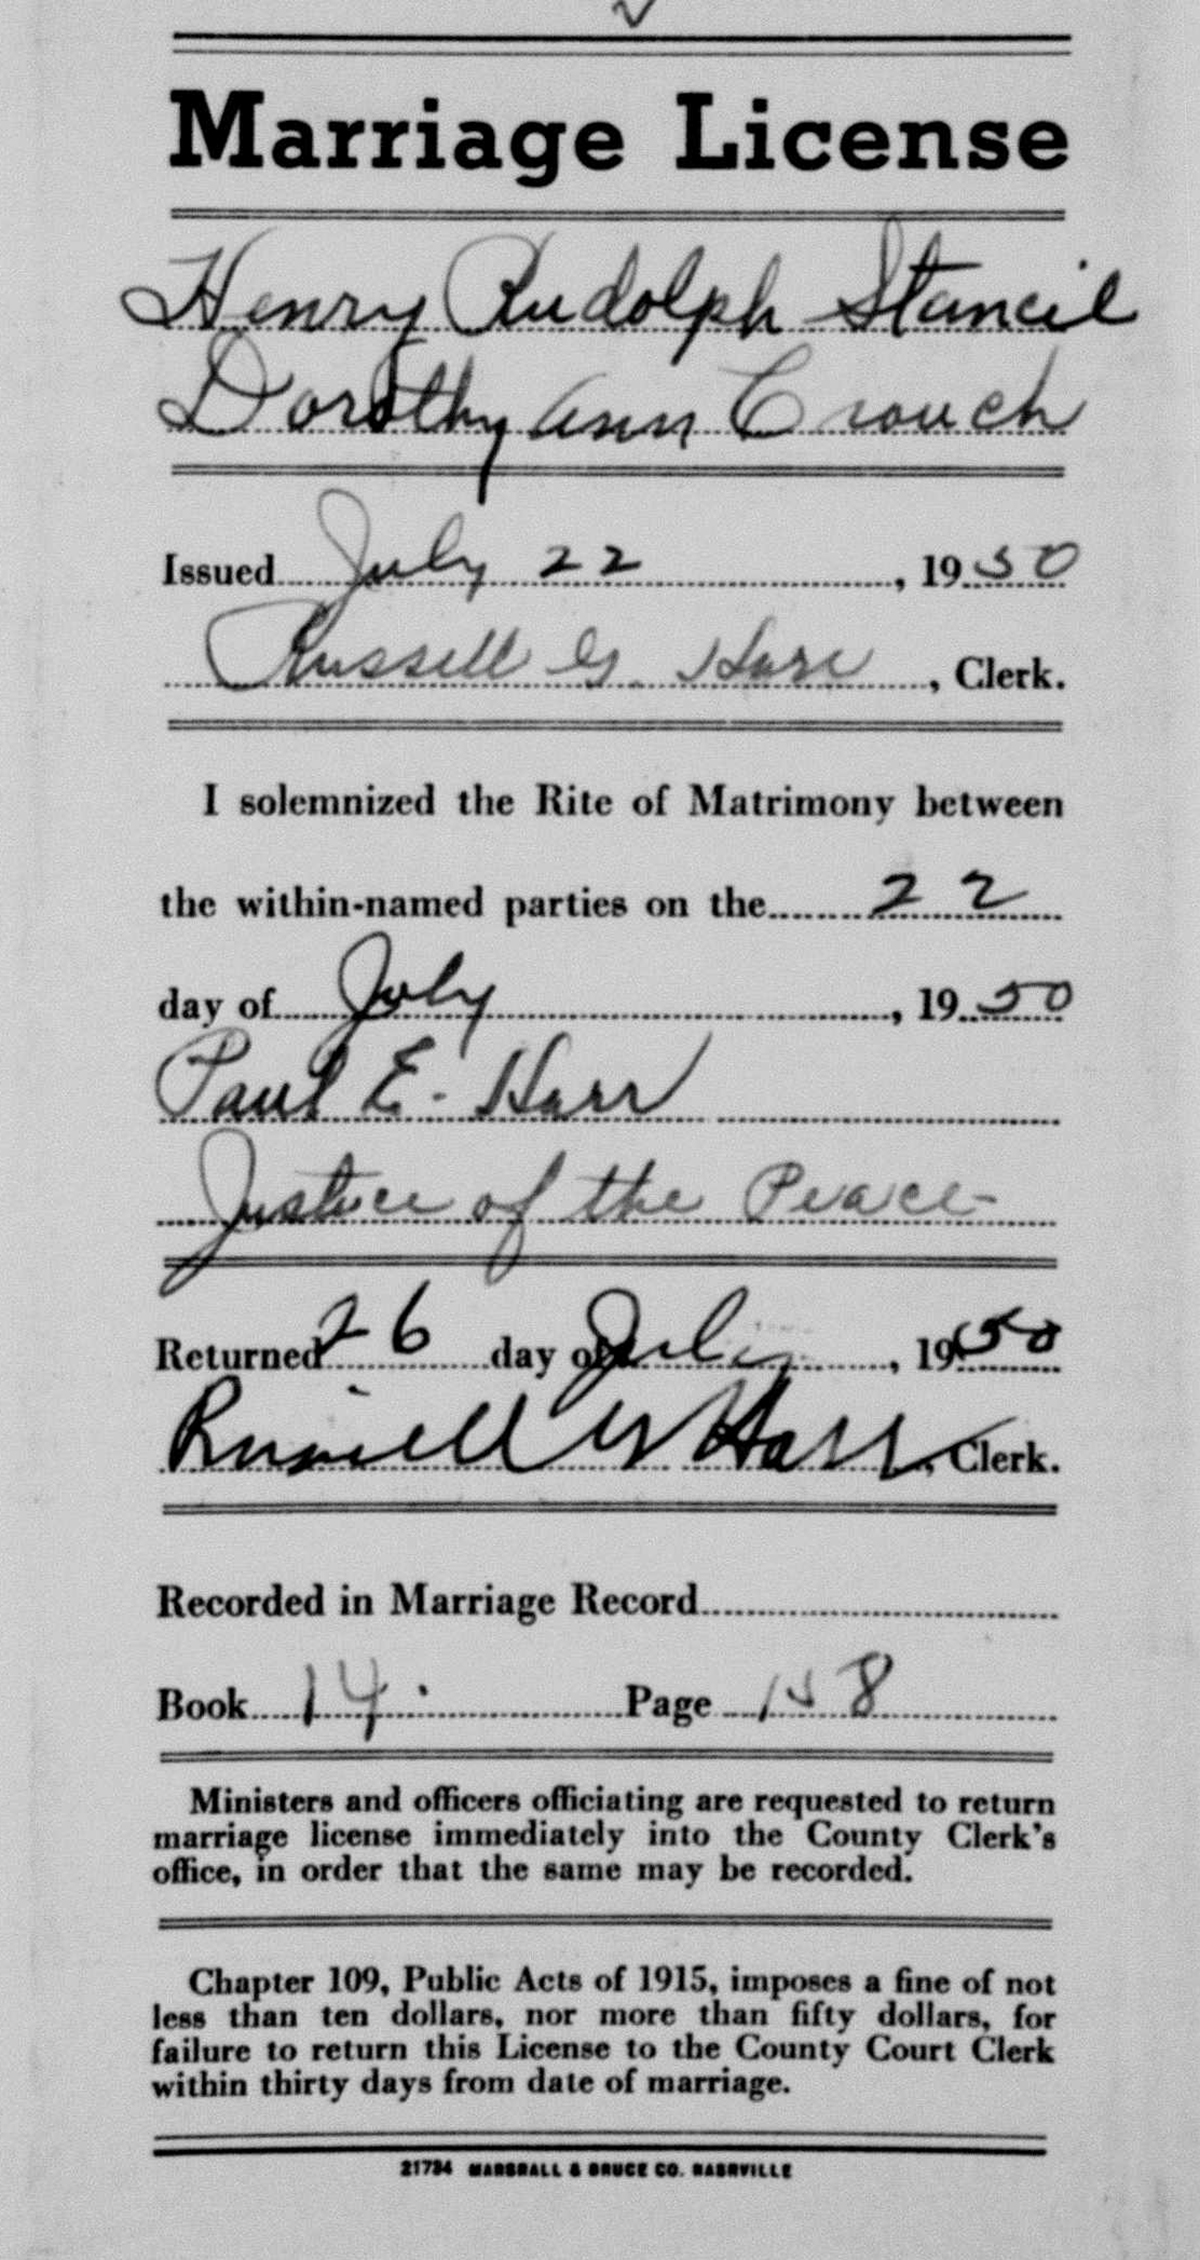 Marriage License
Henry Rudolph Stancil
Dorothy Ann Crouch
Issued July 22, 1950
Russell G. Harr, Clerk.
I solemnized the Rite of Matrimony between
the within-named parties on the 22
day of July, 1950
Paul E. Harr
Justice of the Peace
Returned 26 day of July, 1950
Russell Harr, Clerk.
Recorded in Marriage Record
Book 14. Page 158
Ministers and officers officiating are requested to return
marriage license immediately into the County Clerk's
office, in order that the same may be recorded.
Chapter 109, Public Acts of 1915, imposes a fine of not
less than ten dollars, nor more than fifty dollars, for
failure to return this License to the County Court Clerk
within thirty days from date of marriage.
21734 MARSHALL & BRUCE CO. NASHVILLE